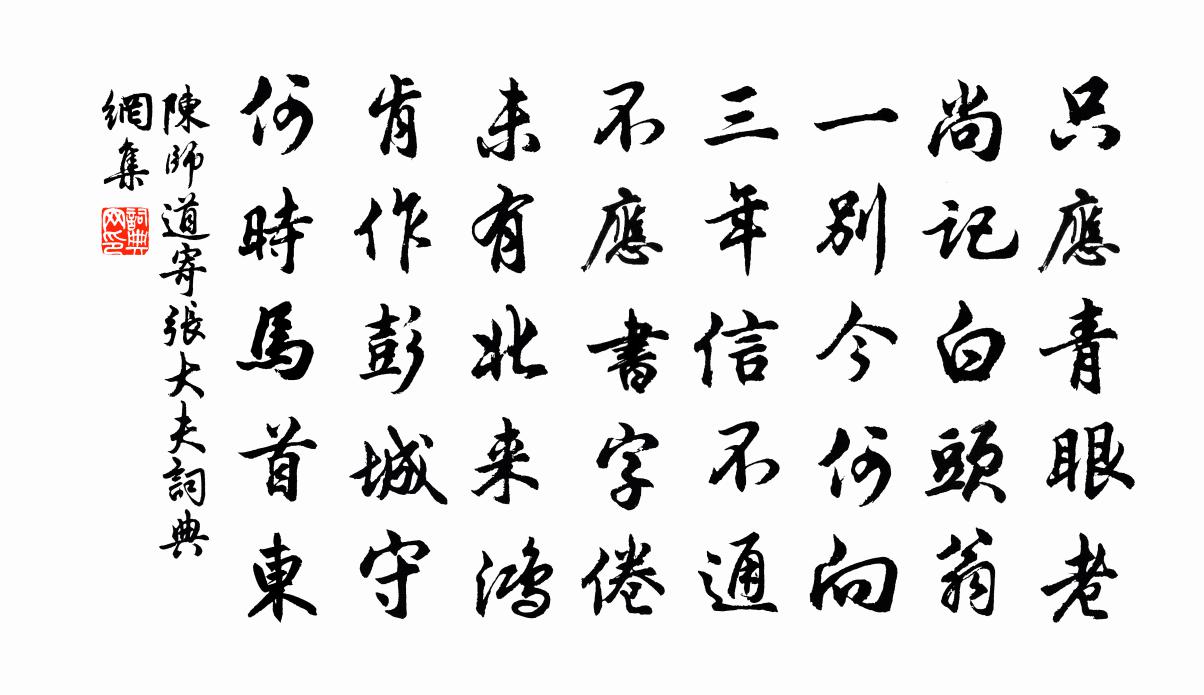 只應青眼老
尚記白頭翁
一別今何向
三年信不通
不應書字倦
未有北来鴻
肯作彭城守
何時馬首東
陳師道寄張大夫詞典
網集
詞典
网印